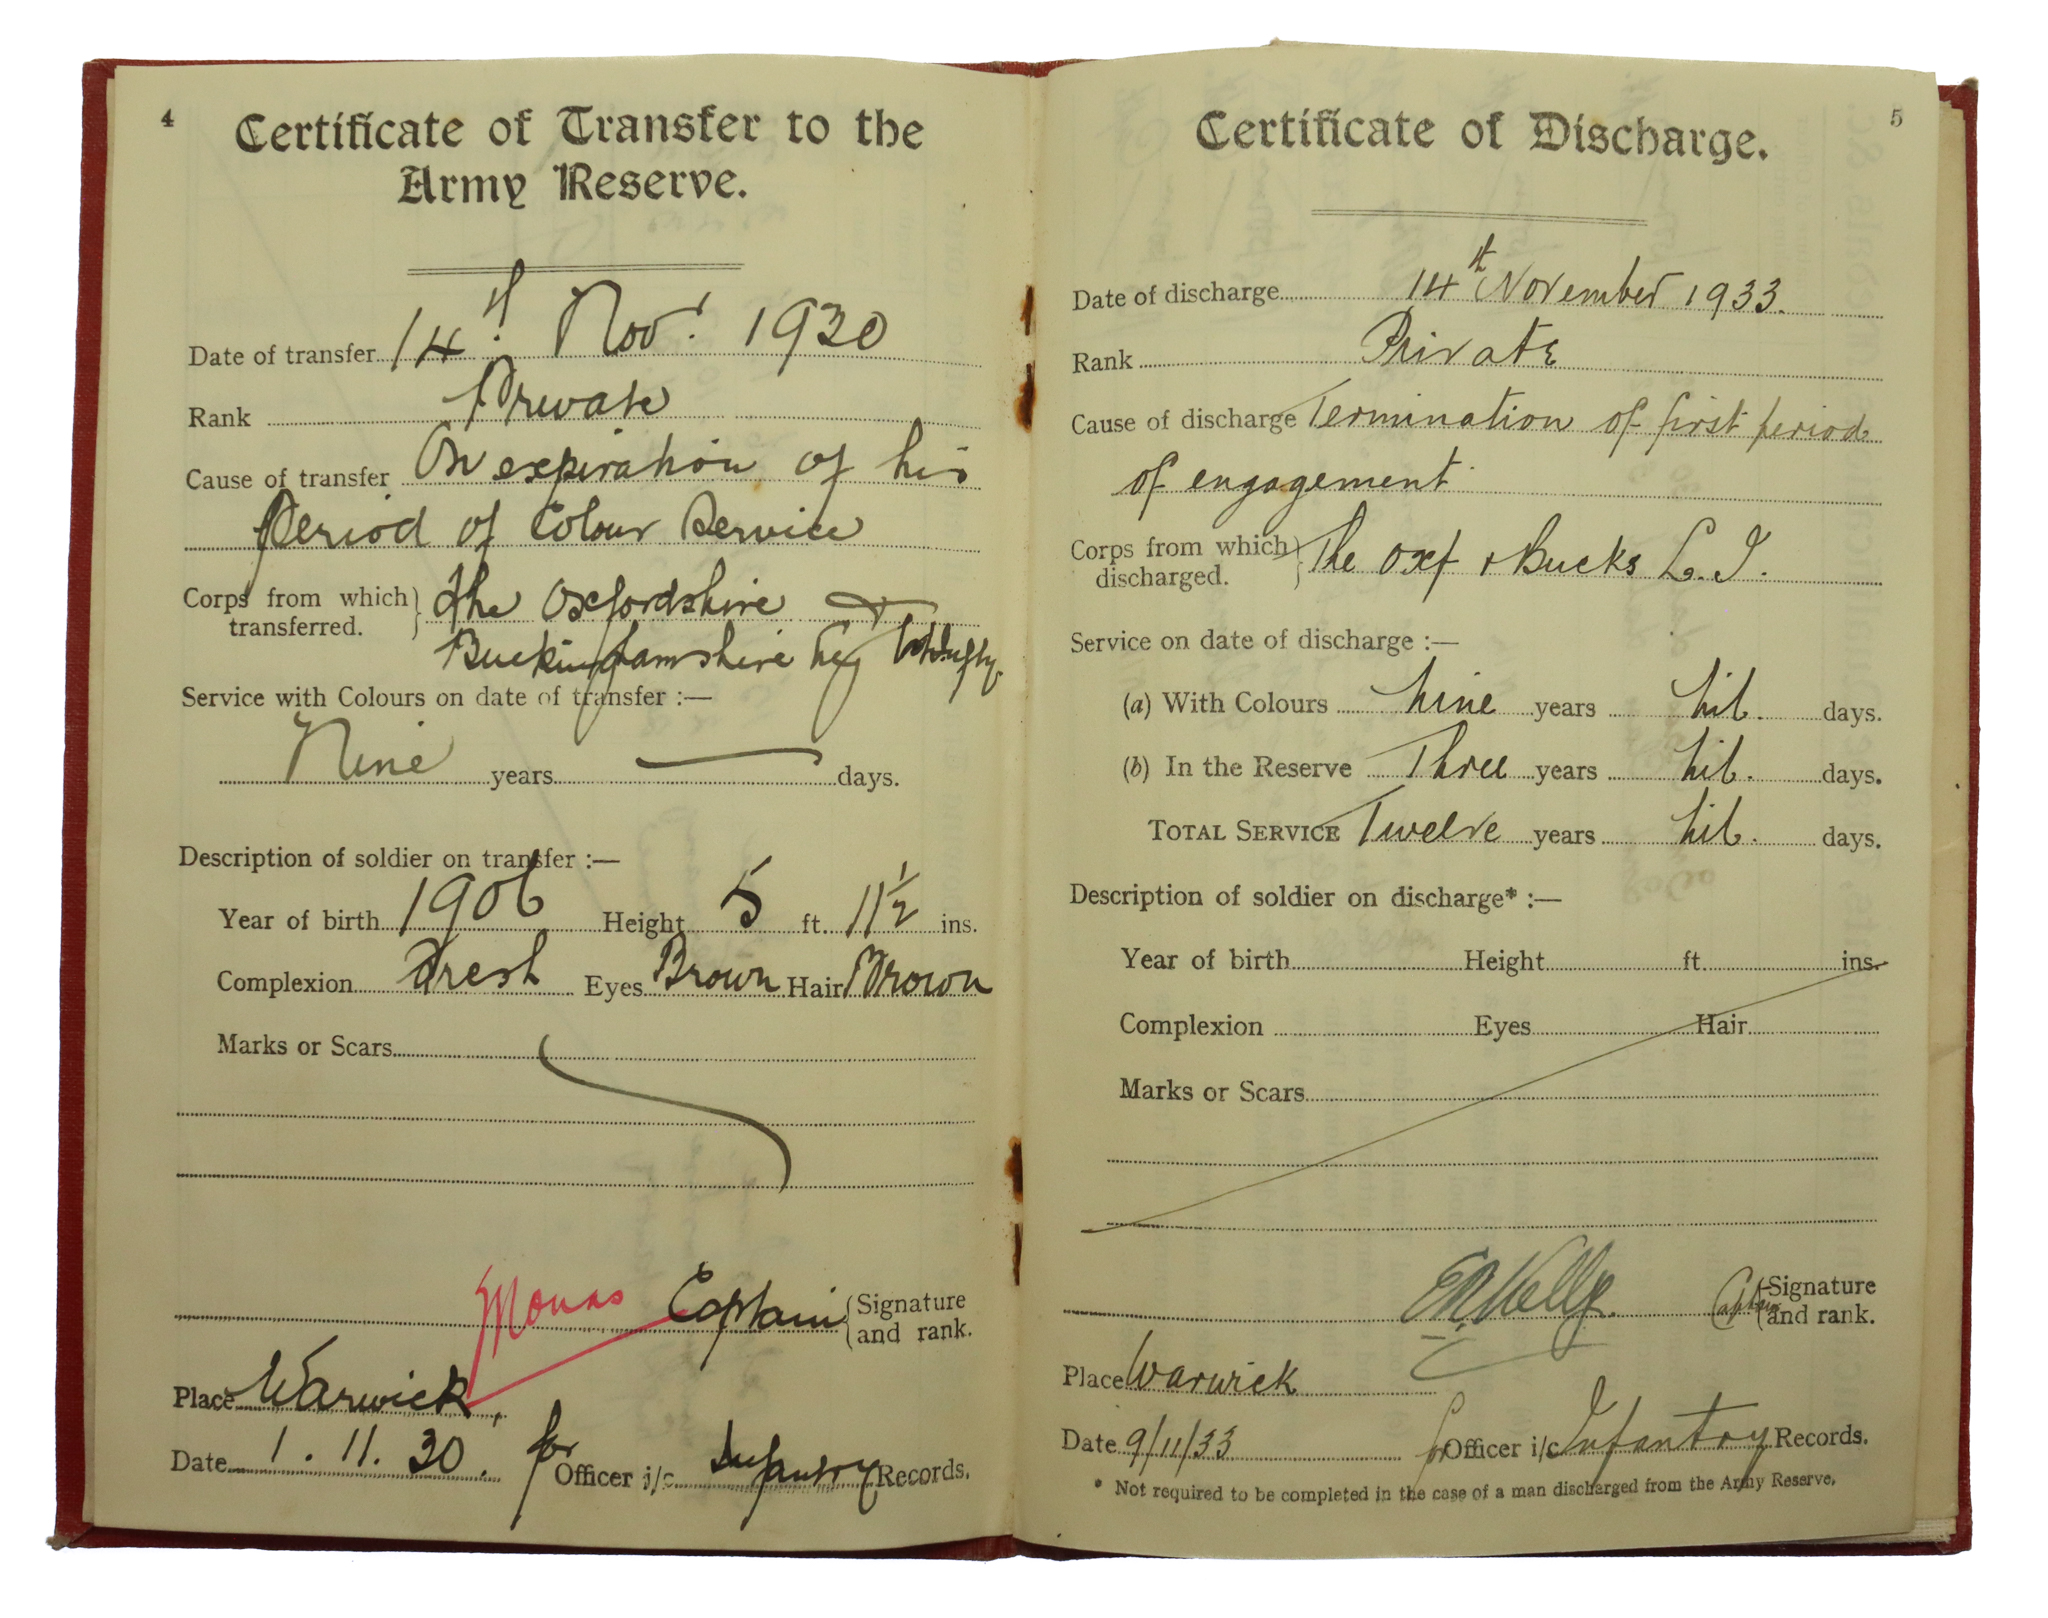 4
Certificate of Transfer to the
Army Reserve.
Date of transfer 14th Nov. 1930
Rank Private
Cause of transfer On expiration of his
Period of Colour Service
Corps from which transferred. } The Oxfordshire &
Buckinghamshire Lt Infty.
Service with Colours on date of transfer :—
Nine years — days.
Description of soldier on transfer :—
Year of birth 1906 Height 5 ft. 11½ ins.
Complexion Fresh Eyes Brown Hair Brown
Marks or Scars
Captain { Signature and rank.
Place Warwick.
Date 1.11.30. for Officer i/c Infantry Records.
5
Certificate of Discharge.
Date of discharge 14th November 1933.
Rank Private
Cause of discharge Termination of first period
of engagement
Corps from which discharged. } The Oxf & Bucks L.I.
Service on date of discharge :—
(a) With Colours nine years nil. days.
(b) In the Reserve Three years nil. days.
TOTAL SERVICE Twelve years nil. days.
Description of soldier on discharge* :—
Year of birth Height ft. ins.
Complexion Eyes Hair
Marks or Scars
Captain { Signature and rank.
Place Warwick
Date 9/11/33 for Officer i/c Infantry Records.
* Not required to be completed in the case of a man discharged from the Army Reserve.